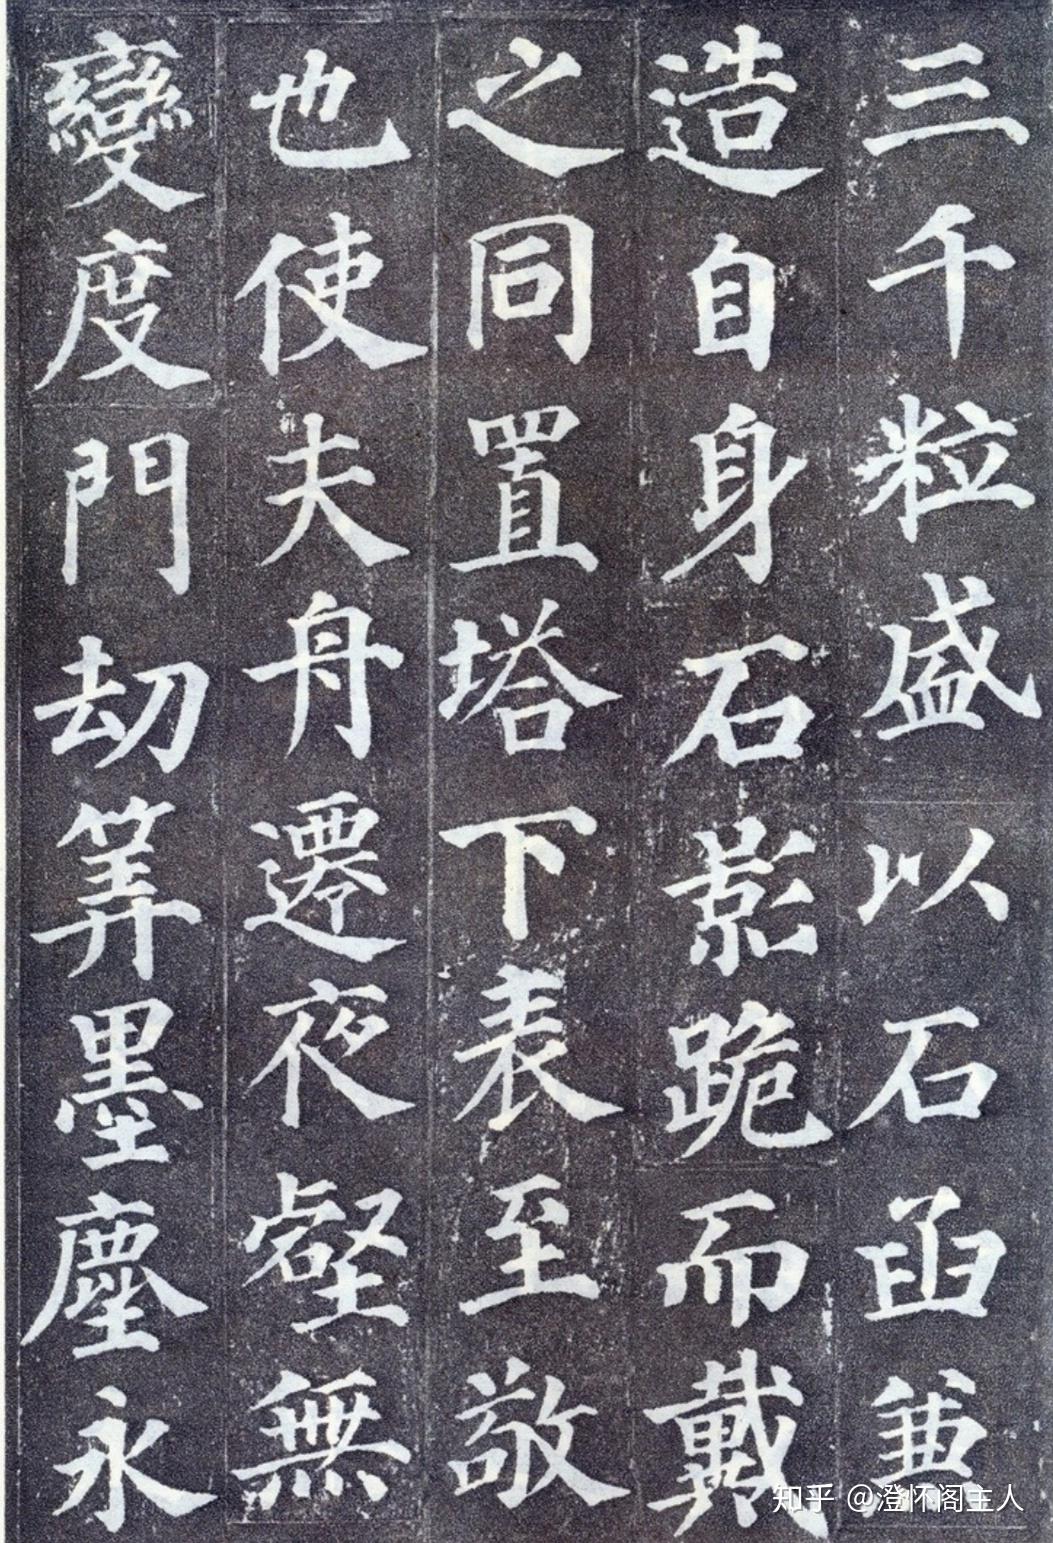 三千粒盛以石函兼
造自身石影跪而戴
之同置塔下表至敬
也使夫舟遷夜壑無
變度門劫筭墨塵永
知乎 @澄怀阁主人